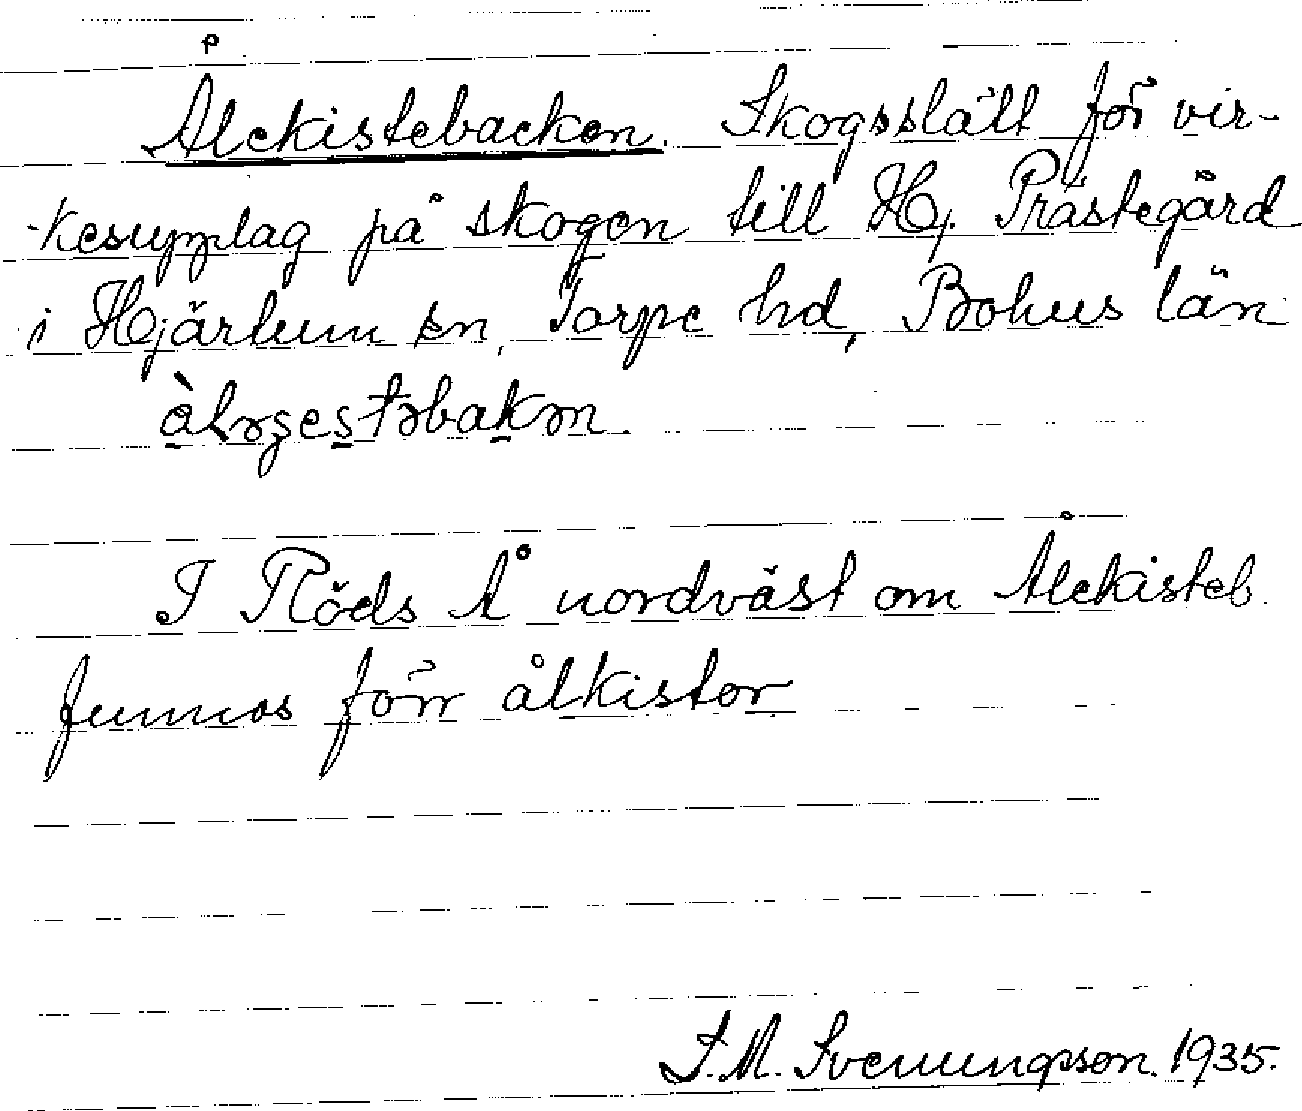 Ålekistebacken. Skogsslätt för vir-
-kesupplag på skogen till Hj. Prästegård
i Hjärtum sn, Torpe hd, Bohus län
I Röds Å nordväst om Ålekisteb.
funnos förr ålkistor
S.M. Svenungsson. 1935.